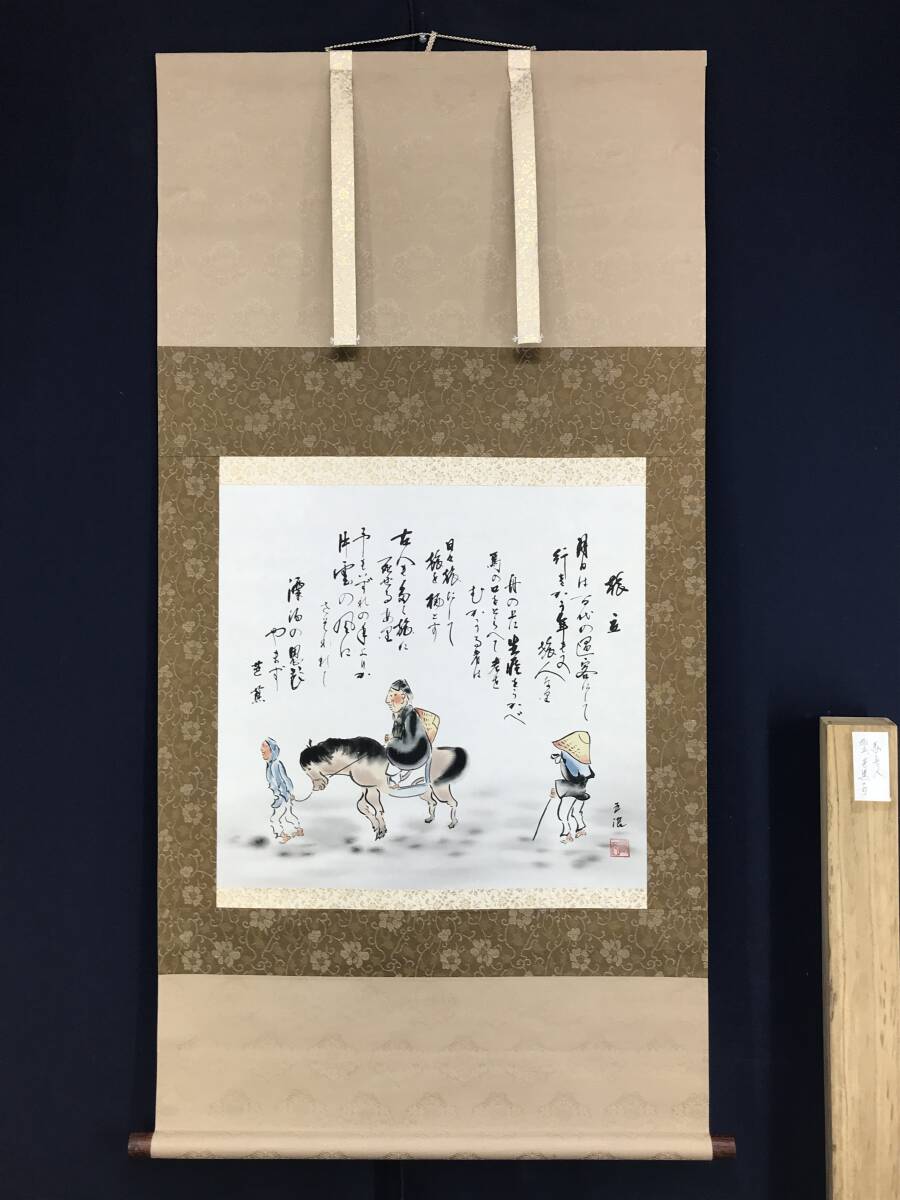 旅立
月日は百代の過客にして
行きかう年も又
旅人なり
舟の上に生涯をうかべ
馬の口をとらへて老を
むかうる者は
日々旅にして
旅を栖とす
古人も多く旅に
死せるあり
予もいづれの年よりか
片雲の風に
さそわれて
漂泊の思ひ
やまず
芭蕉